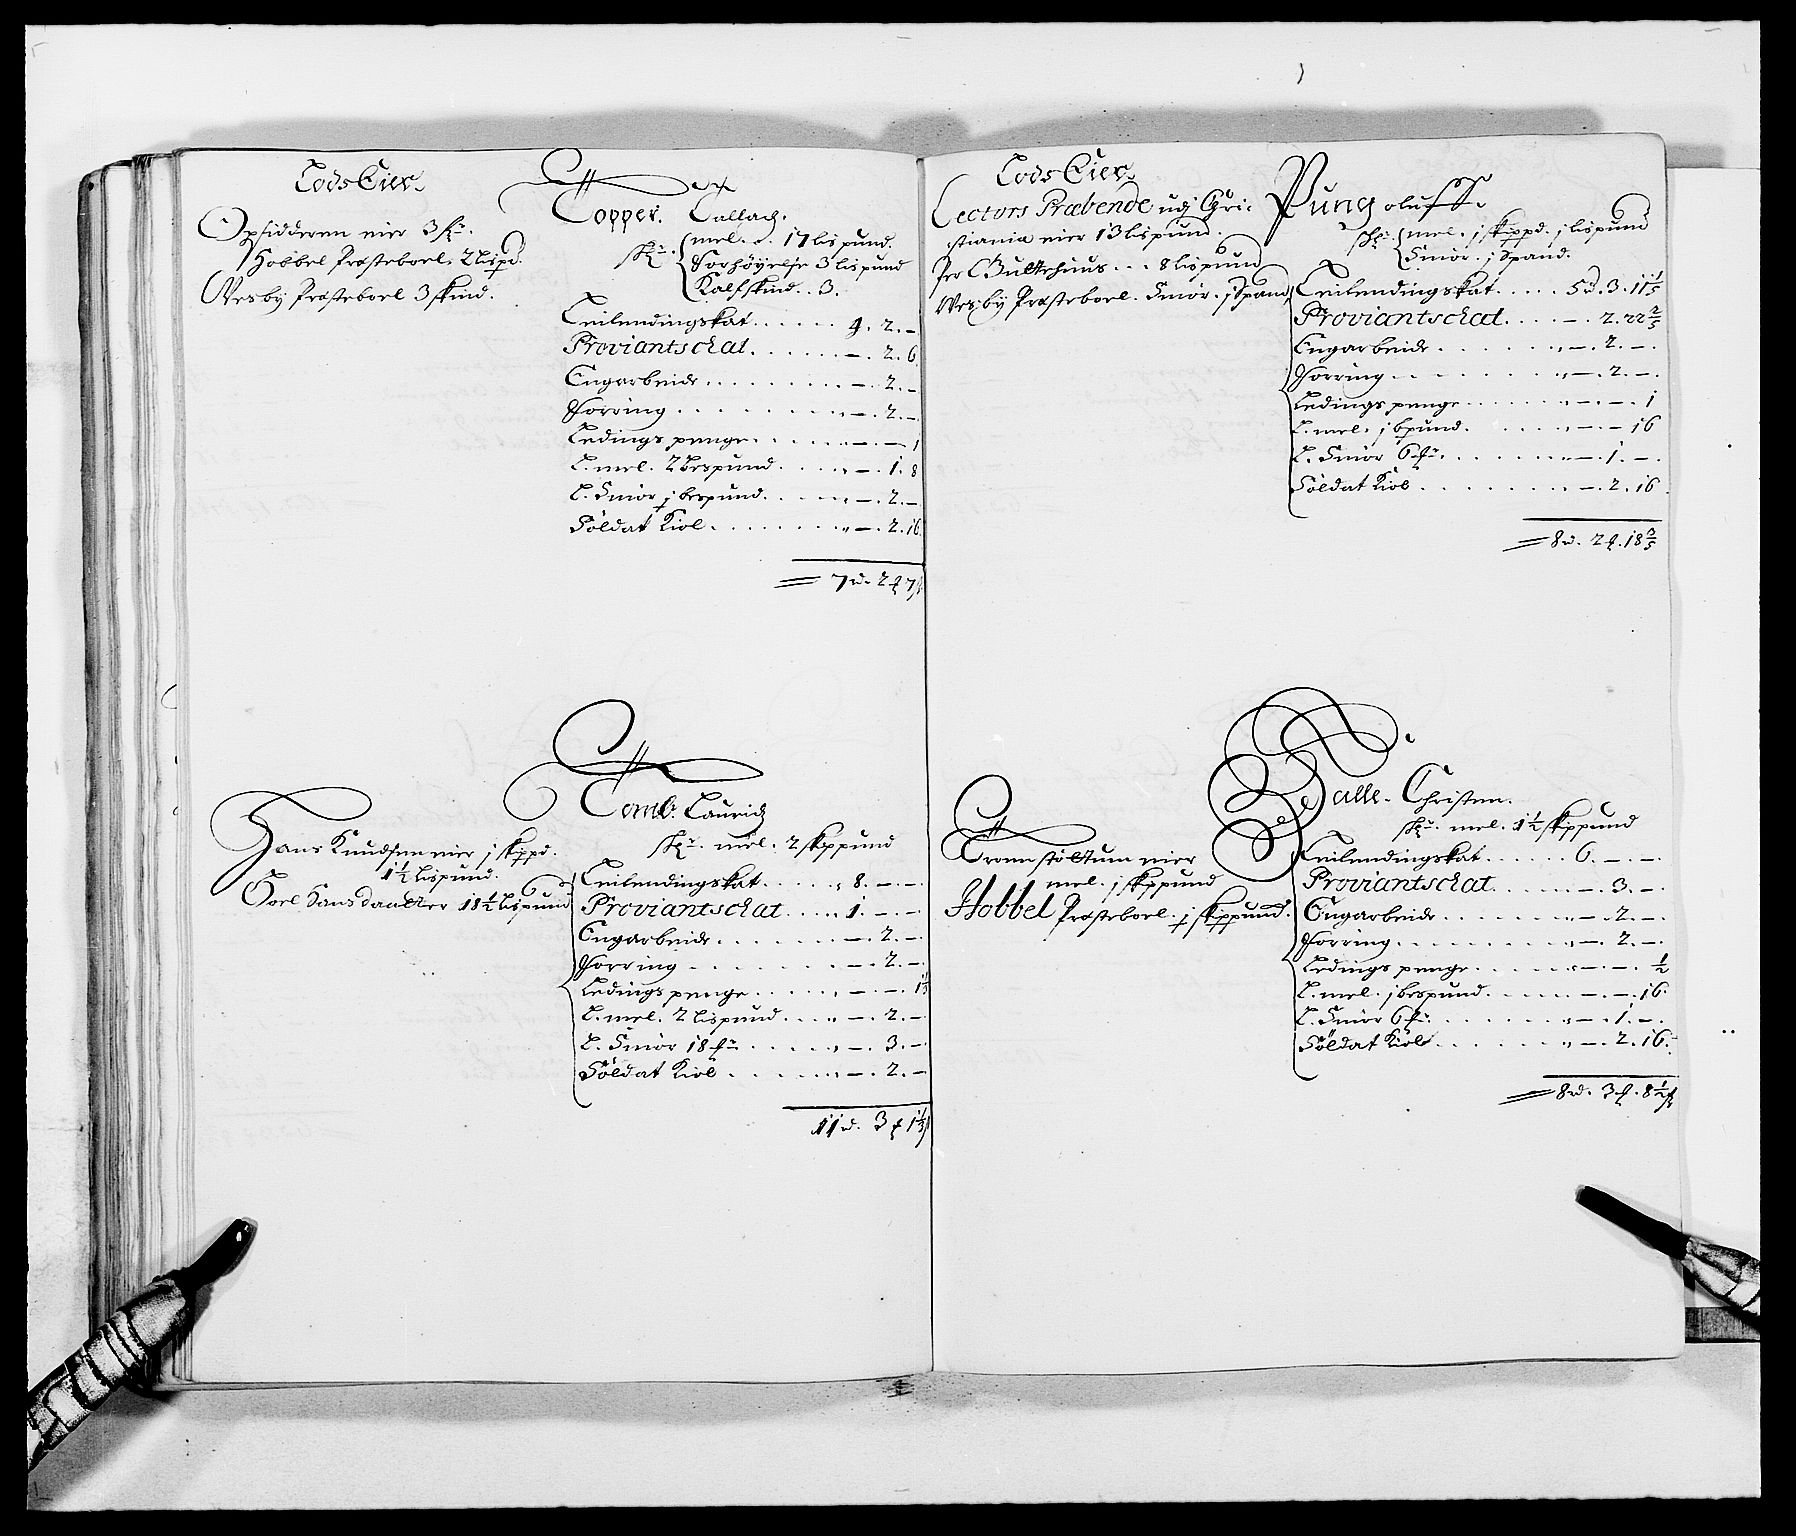 LodsEier.
Opsidderen eier 3 ℔.
Hobbel Præsteboel. 2 Lispd.
Wesby Præsteboel 3 skind.
Topper. Tallach.
Sk: mel. . . 17 lispund.
Forhöyelse 3 lispund
Kalfskind. . 3.
Leilendingskat. . . . . . 4. 2. –
Proviantschat. . . . . . – . 2. 6
Engarbeide. . . . . . . . – . 2. –
Forring . . . . . . . . „ – . 2. –
Ledings penge. . . . . . – . – . 1
L. mel. 2 Lispund. . . . „ – . 1. 8
L. Smör j bespund. . . . „ – . 2. –
Soldat Kiol. . . . . . . „ – . 2. 16
7 d. 2 ℳ 7 β
Hans Knudsen eier j skppd.
1½ Lispund.
Goel Hansdaatter 18½ Lispund
Tomb. Lauridz
Sk: mel. 2 skippund
Leilendingskat. . . . „ 8. – . –
Proviantschat. . . . „ 1. – . –
Engarbeide. . . . . . . – . 2. –
Forring . . . . . . . . – . 2. –
Ledings penge. . . . „ – . – . 1⅓
L. mel. 2 Lispund. . . „ – . 2. –
L. Smör 18 ℔ . . . . „ – . 3. –
Soldat Kiol . . . . . „ – . 2. –
11 d. 3 ℳ 1⅓ β
LodsEier.
Lectors Præbende udj Chri-
stiania eier 13 lispund.
Per Bultehuus . . . 8 lispund
Wesby Præsteboel. Smör. j Spand
Pung oluff.
Sk: mel. j skippd. j lispund
Smör. j Spand.
Leilendingskat. . . . . 5 d. 3. 11⅕
Proviantschat. . . . – . 2. 22⅖
Engarbeide . . . . . . „ – . 2. – .
Forring . . . . . . . . „ – . 2. – .
Ledings penge . . . . . „ – . – . 1
L. mel. j bpund. . . . . „ – . – 16
L. Smör 6 ℔. . . . . . . „ – . 1. – .
Soldat Kiol . . . . . . „ – . 2. 16
8 d. 2 ℳ. 18⅗
Tronn stöltum eier
mel. j skippund
Hobbel Præsteboel. j skippund.
Dalle. Christen.
Sk: mel. 1½ skippund
Leilendingskat. . . . . . 6. – . –
Proviantschat. . . . . . – . 3. – .
Engarbeide. . . . . . . „ – . 2. – .
Forring. . . . . . . . . „ – . 2. – .
Ledings penge. . . . . „ – . – . ½
L. mel. j bespund. . . . . – . – . 16.
L. Smör 6 ℔. . . . . . „ – . 1. – .
Soldat Kiol. . . . . . „ – . 2. 16.
8 d. 3 ℳ. 8½ β